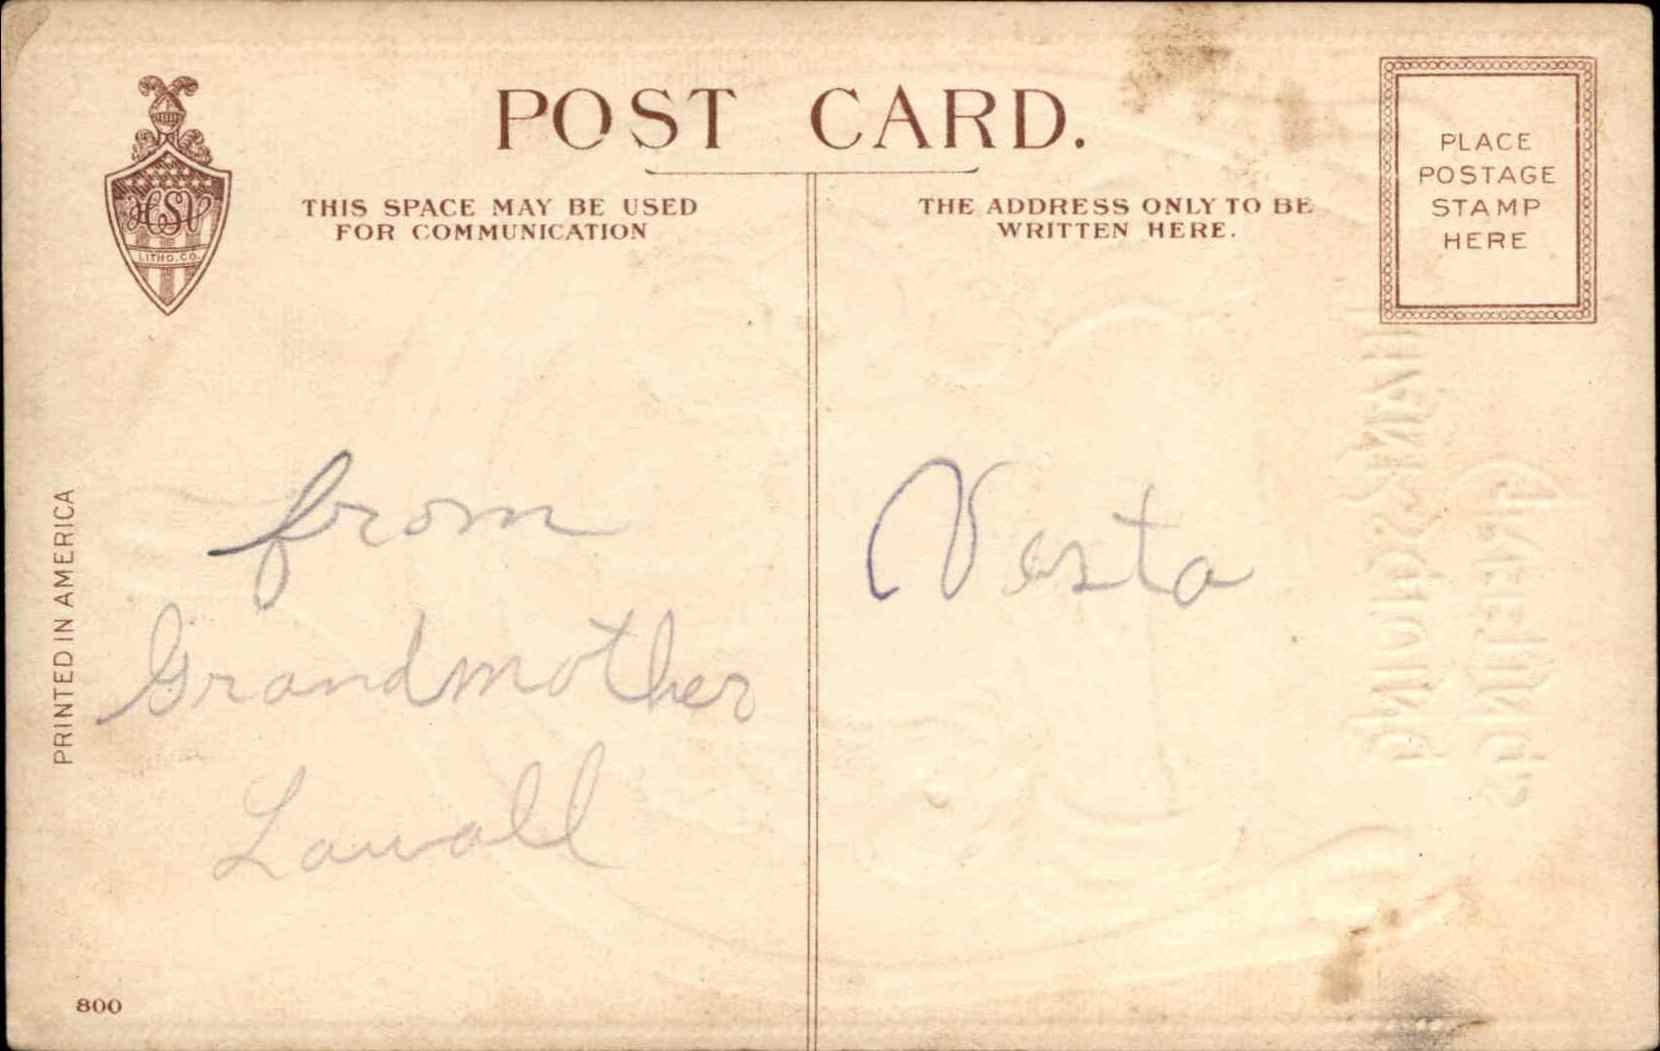 POST CARD.
THIS SPACE MAY BE USED
FOR COMMUNICATION
THE ADDRESS ONLY TO BE
WRITTEN HERE.
PLACE
POSTAGE
STAMP
HERE
HSV
LITHO. CO.
PRINTED IN AMERICA
from
Grandmother
Lawall
Vesta
800
THANKSGIVING
Greetings